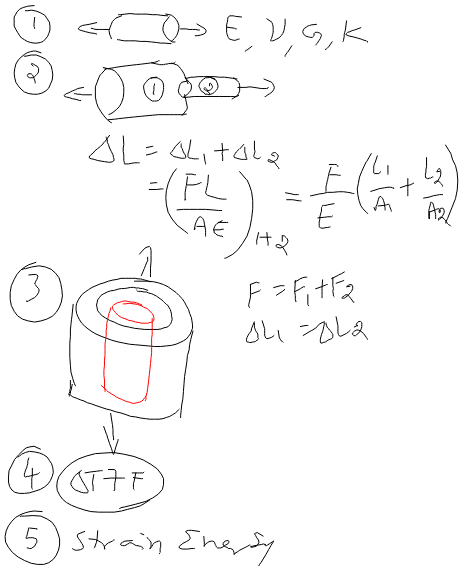 ① E, ν, G, K
② ① ②
ΔL = ΔL₁ + ΔL₂
= (FL/AE)₁₊₂ = F/E (L₁/A₁ + L₂/A₂)
③ F = F₁ + F₂
ΔL₁ = ΔL₂
④ ΔT + F
⑤ Strain Energy